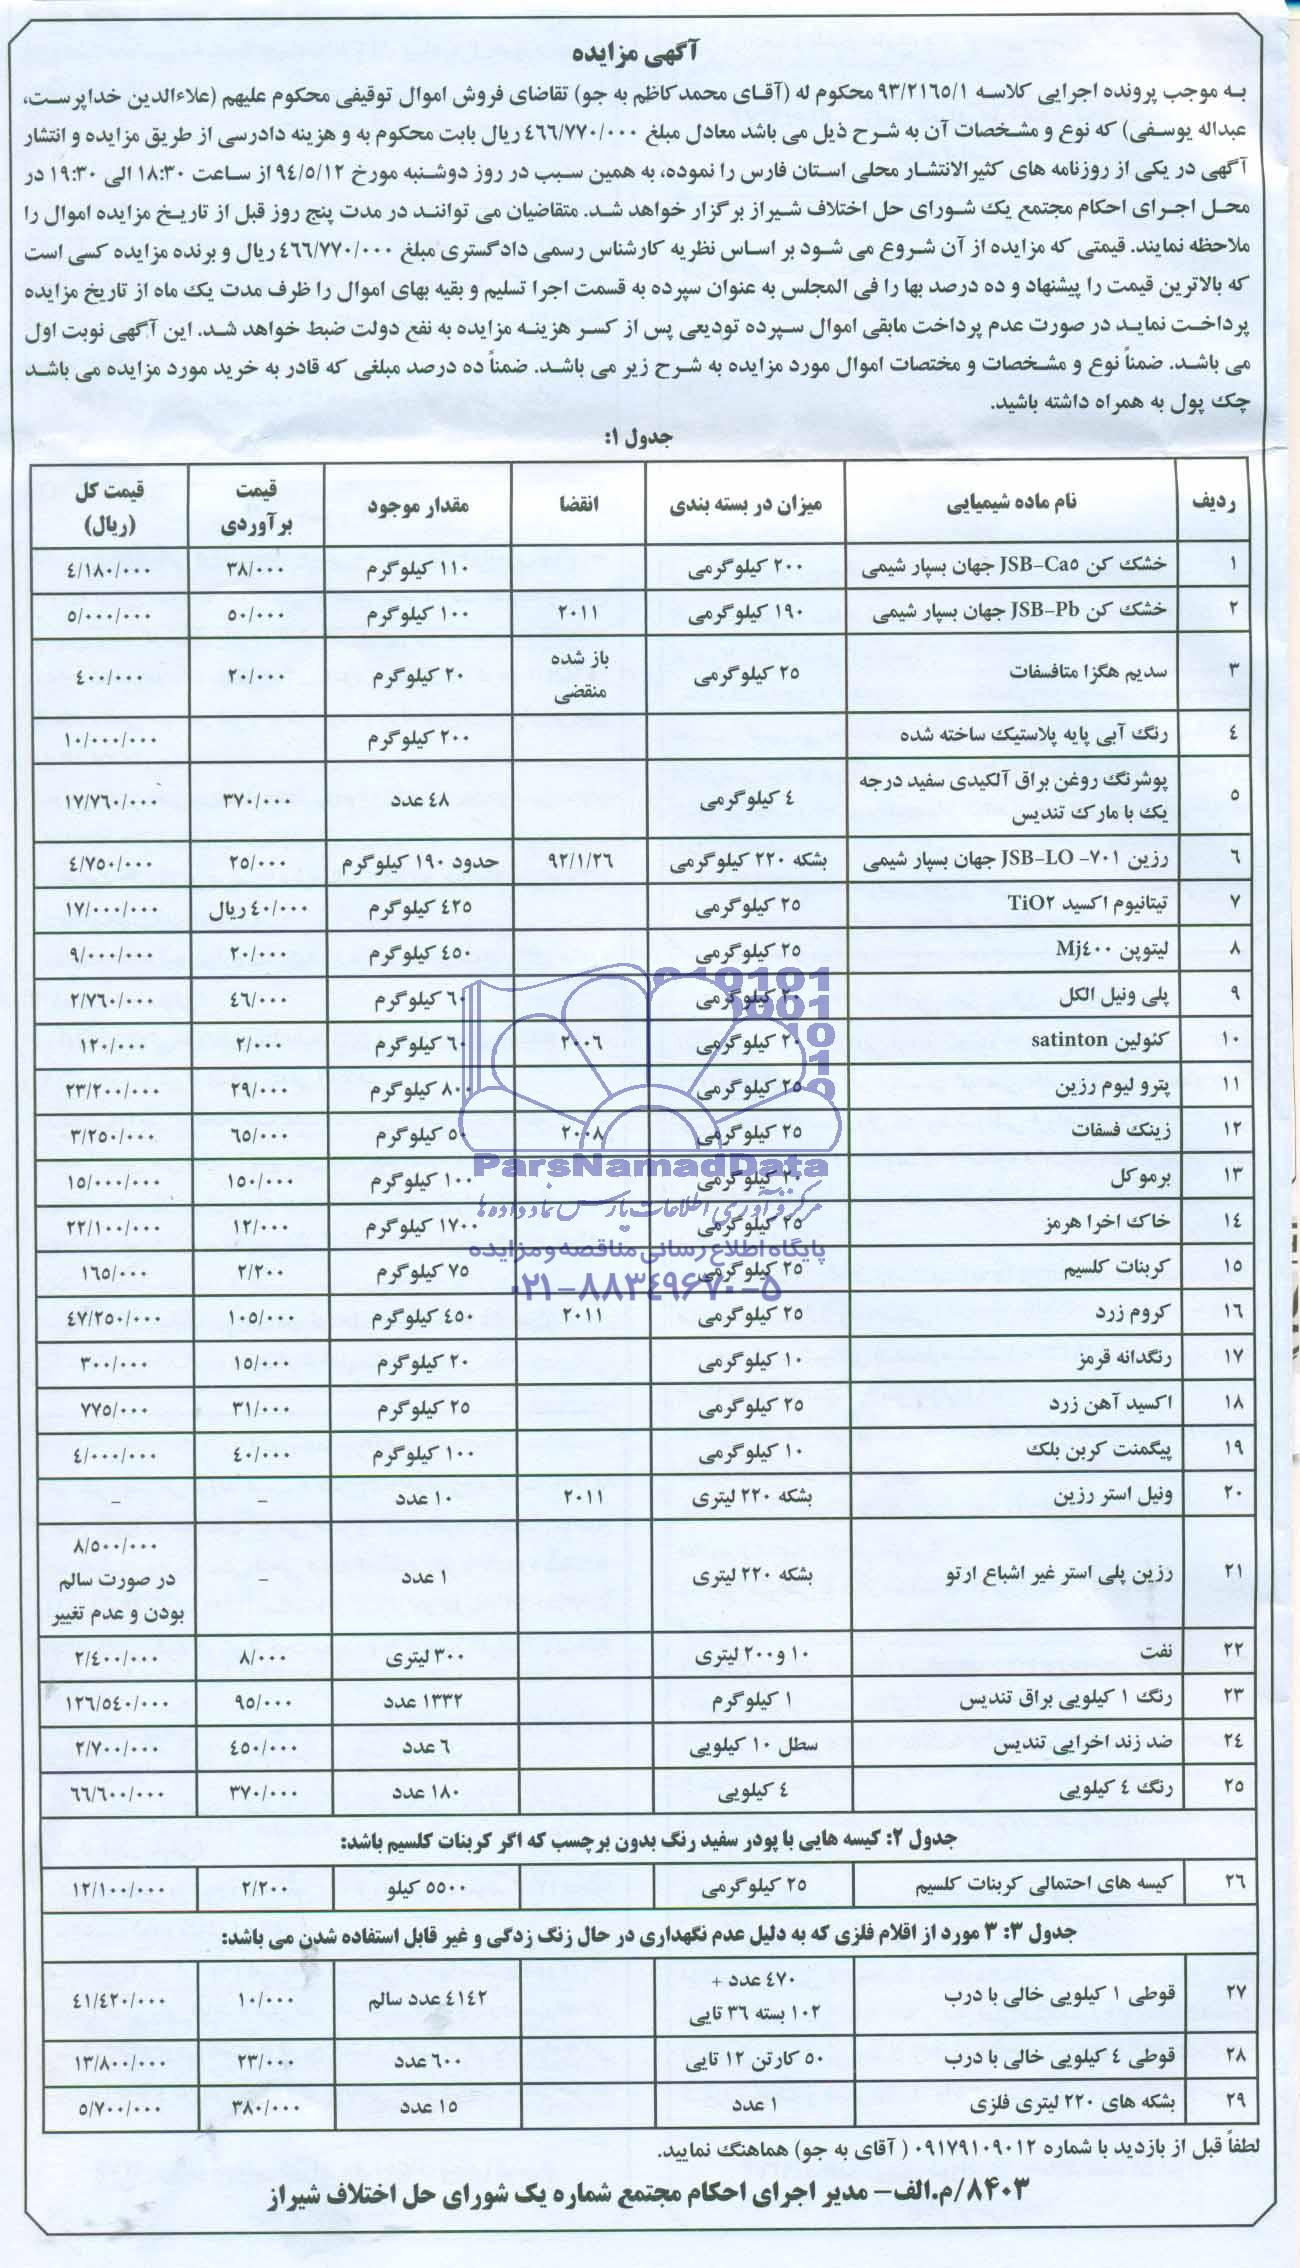 آگهی مزایده
به موجب پرونده اجرایی کلاسه ۹۳/۲۱٦٥/۱ محکوم له (آقای محمدکاظم به جو) تقاضای فروش اموال توقیفی محکوم علیهم (علاءالدین خداپرست،
عبداله یوسفی) که نوع و مشخصات آن به شرح ذیل می باشد معادل مبلغ ٤٦٦/۷۷۰/۰۰۰ ریال بابت محکوم به و هزینه دادرسی از طریق مزایده و انتشار
آگهی در یکی از روزنامه های کثیرالانتشار محلی استان فارس را نموده، به همین سبب در روز دوشنبه مورخ ۹٤/٥/۱۲ از ساعت ۱۸:۳۰ الی ۱۹:۳۰ در
محل اجرای احکام مجتمع یک شورای حل اختلاف شیراز برگزار خواهد شد. متقاضیان می توانند در مدت پنج روز قبل از تاریخ مزایده اموال را
ملاحظه نمایند. قیمتی که مزایده از آن شروع می شود بر اساس نظریه کارشناس رسمی دادگستری مبلغ ٤٦٦/۷۷۰/۰۰۰ ریال و برنده مزایده کسی است
که بالاترین قیمت را پیشنهاد و ده درصد بها را فی المجلس به عنوان سپرده به قسمت اجرا تسلیم و بقیه بهای اموال را ظرف مدت یک ماه از تاریخ مزایده
پرداخت نماید در صورت عدم پرداخت مابقی اموال سپرده تودیعی پس از کسر هزینه مزایده به نفع دولت ضبط خواهد شد. این آگهی نوبت اول
می باشد. ضمناً نوع و مشخصات و مختصات اموال مورد مزایده به شرح زیر می باشد. ضمناً ده درصد مبلغی که قادر به خرید مورد مزایده می باشد
چک پول به همراه داشته باشید.
جدول ۱:
ردیف نام ماده شیمیایی میزان در بسته بندی انقضا مقدار موجود قیمت برآوردی قیمت کل (ریال)
۱ خشک کن JSB-Ca٥ جهان بسپار شیمی ۲۰۰ کیلوگرمی ۱۱۰ کیلوگرم ۳۸/۰۰۰ ٤/۱۸۰/۰۰۰
۲ خشک کن JSB-Pb جهان بسپار شیمی ۱۹۰ کیلوگرمی ۲۰۱۱ ۱۰۰ کیلوگرم ٥۰/۰۰۰ ٥/۰۰۰/۰۰۰
۳ سدیم هگزا متافسفات ۲٥ کیلوگرمی باز شده منقضی ۲۰ کیلوگرم ۲۰/۰۰۰ ٤۰۰/۰۰۰
٤ رنگ آبی پایه پلاستیک ساخته شده ۲۰۰ کیلوگرم ۱۰/۰۰۰/۰۰۰
٥ پوشرنگ روغن براق آلکیدی سفید درجه یک با مارک تندیس ٤ کیلوگرمی ٤۸ عدد ۳۷۰/۰۰۰ ۱۷/۷٦۰/۰۰۰
٦ رزین JSB-LO -۷۰۱ جهان بسپار شیمی بشکه ۲۲۰ کیلوگرمی ۹۲/۱/۲٦ حدود ۱۹۰ کیلوگرم ۲٥/۰۰۰ ٤/۷٥۰/۰۰۰
۷ تیتانیوم اکسید TiO۲ ۲٥ کیلوگرمی ٤۲٥ کیلوگرم ٤۰/۰۰۰ ریال ۱۷/۰۰۰/۰۰۰
۸ لیتوپن Mj٤۰۰ ۲٥ کیلوگرمی ٤٥۰ کیلوگرم ۲۰/۰۰۰ ۹/۰۰۰/۰۰۰
۹ پلی ونیل الکل ۲۰ کیلوگرمی ٦۰ کیلوگرم ٤٦/۰۰۰ ۲/۷٦۰/۰۰۰
۱۰ کئولین satinton ۲۰ کیلوگرمی ۲۰۰٦ ٦۰ کیلوگرم ۲/۰۰۰ ۱۲۰/۰۰۰
۱۱ پترو لیوم رزین ۲٥ کیلوگرمی ۸۰۰ کیلوگرم ۲۹/۰۰۰ ۲۳/۲۰۰/۰۰۰
۱۲ زینک فسفات ۲٥ کیلوگرمی ۲۰۰۸ ٥۰ کیلوگرم ٦٥/۰۰۰ ۳/۲٥۰/۰۰۰
۱۳ برموکل ۲۰ کیلوگرمی ۱۰۰ کیلوگرم ۱٥۰/۰۰۰ ۱٥/۰۰۰/۰۰۰
۱٤ خاک اخرا هرمز ۲٥ کیلوگرمی ۱۷۰۰ کیلوگرم ۱۲/۰۰۰ ۲۲/۱۰۰/۰۰۰
۱٥ کربنات کلسیم ۲٥ کیلوگرمی ۷٥ کیلوگرم ۲/۲۰۰ ۱٦٥/۰۰۰
۱٦ کروم زرد ۲٥ کیلوگرمی ۲۰۱۱ ٤٥۰ کیلوگرم ۱۰٥/۰۰۰ ٤۷/۲٥۰/۰۰۰
۱۷ رنگدانه قرمز ۱۰ کیلوگرمی ۲۰ کیلوگرم ۱٥/۰۰۰ ۳۰۰/۰۰۰
۱۸ اکسید آهن زرد ۲٥ کیلوگرمی ۲٥ کیلوگرم ۳۱/۰۰۰ ۷۷٥/۰۰۰
۱۹ پیگمنت کربن بلک ۱۰ کیلوگرمی ۱۰۰ کیلوگرم ٤۰/۰۰۰ ٤/۰۰۰/۰۰۰
۲۰ ونیل استر رزین بشکه ۲۲۰ لیتری ۲۰۱۱ ۱۰ عدد – –
۲۱ رزین پلی استر غیر اشباع ارتو بشکه ۲۲۰ لیتری ۱ عدد – ۸/٥۰۰/۰۰۰ در صورت سالم بودن و عدم تغییر
۲۲ نفت ۱۰ و۲۰۰ لیتری ۳۰۰ لیتری ۸/۰۰۰ ۲/٤۰۰/۰۰۰
۲۳ رنگ ۱ کیلویی براق تندیس ۱ کیلوگرم ۱۳۳۲ عدد ۹٥/۰۰۰ ۱۲٦/٥٤۰/۰۰۰
۲٤ ضد زند اخرایی تندیس سطل ۱۰ کیلویی ٦ عدد ٤٥۰/۰۰۰ ۲/۷۰۰/۰۰۰
۲٥ رنگ ٤ کیلویی ٤ کیلویی ۱۸۰ عدد ۳۷۰/۰۰۰ ٦٦/٦۰۰/۰۰۰
جدول ۲: کیسه هایی با پودر سفید رنگ بدون برچسب که اگر کربنات کلسیم باشد:
۲٦ کیسه های احتمالی کربنات کلسیم ۲٥ کیلوگرمی ٥٥۰۰ کیلو ۲/۲۰۰ ۱۲/۱۰۰/۰۰۰
جدول ۳: ۳ مورد از اقلام فلزی که به دلیل عدم نگهداری در حال زنگ زدگی و غیر قابل استفاده شدن می باشد:
۲۷ قوطی ۱ کیلویی خالی با درب ٤۷۰ عدد + ۱۰۲ بسته ۳٦ تایی ٤۱٤۲ عدد سالم ۱۰/۰۰۰ ٤۱/٤۲۰/۰۰۰
۲۸ قوطی ٤ کیلویی خالی با درب ٥۰ کارتن ۱۲ تایی ٦۰۰ عدد ۲۳/۰۰۰ ۱۳/۸۰۰/۰۰۰
۲۹ بشکه های ۲۲۰ لیتری فلزی ۱ عدد ۱٥ عدد ۳۸۰/۰۰۰ ٥/۷۰۰/۰۰۰
لطفاً قبل از بازدید با شماره ۰۹۱۷۹۱۰۹۰۱۲ ( آقای به جو) هماهنگ نمایید.
۸٤۰۳/م.الف– مدیر اجرای احکام مجتمع شماره یک شورای حل اختلاف شیراز
ParsNamadData
مرکز فرآوری اطلاعات پارس نماد داده ها
پایگاه اطلاع رسانی مناقصه و مزایده
۰۲۱-۸۸۳۴۹۶۷۰-۵